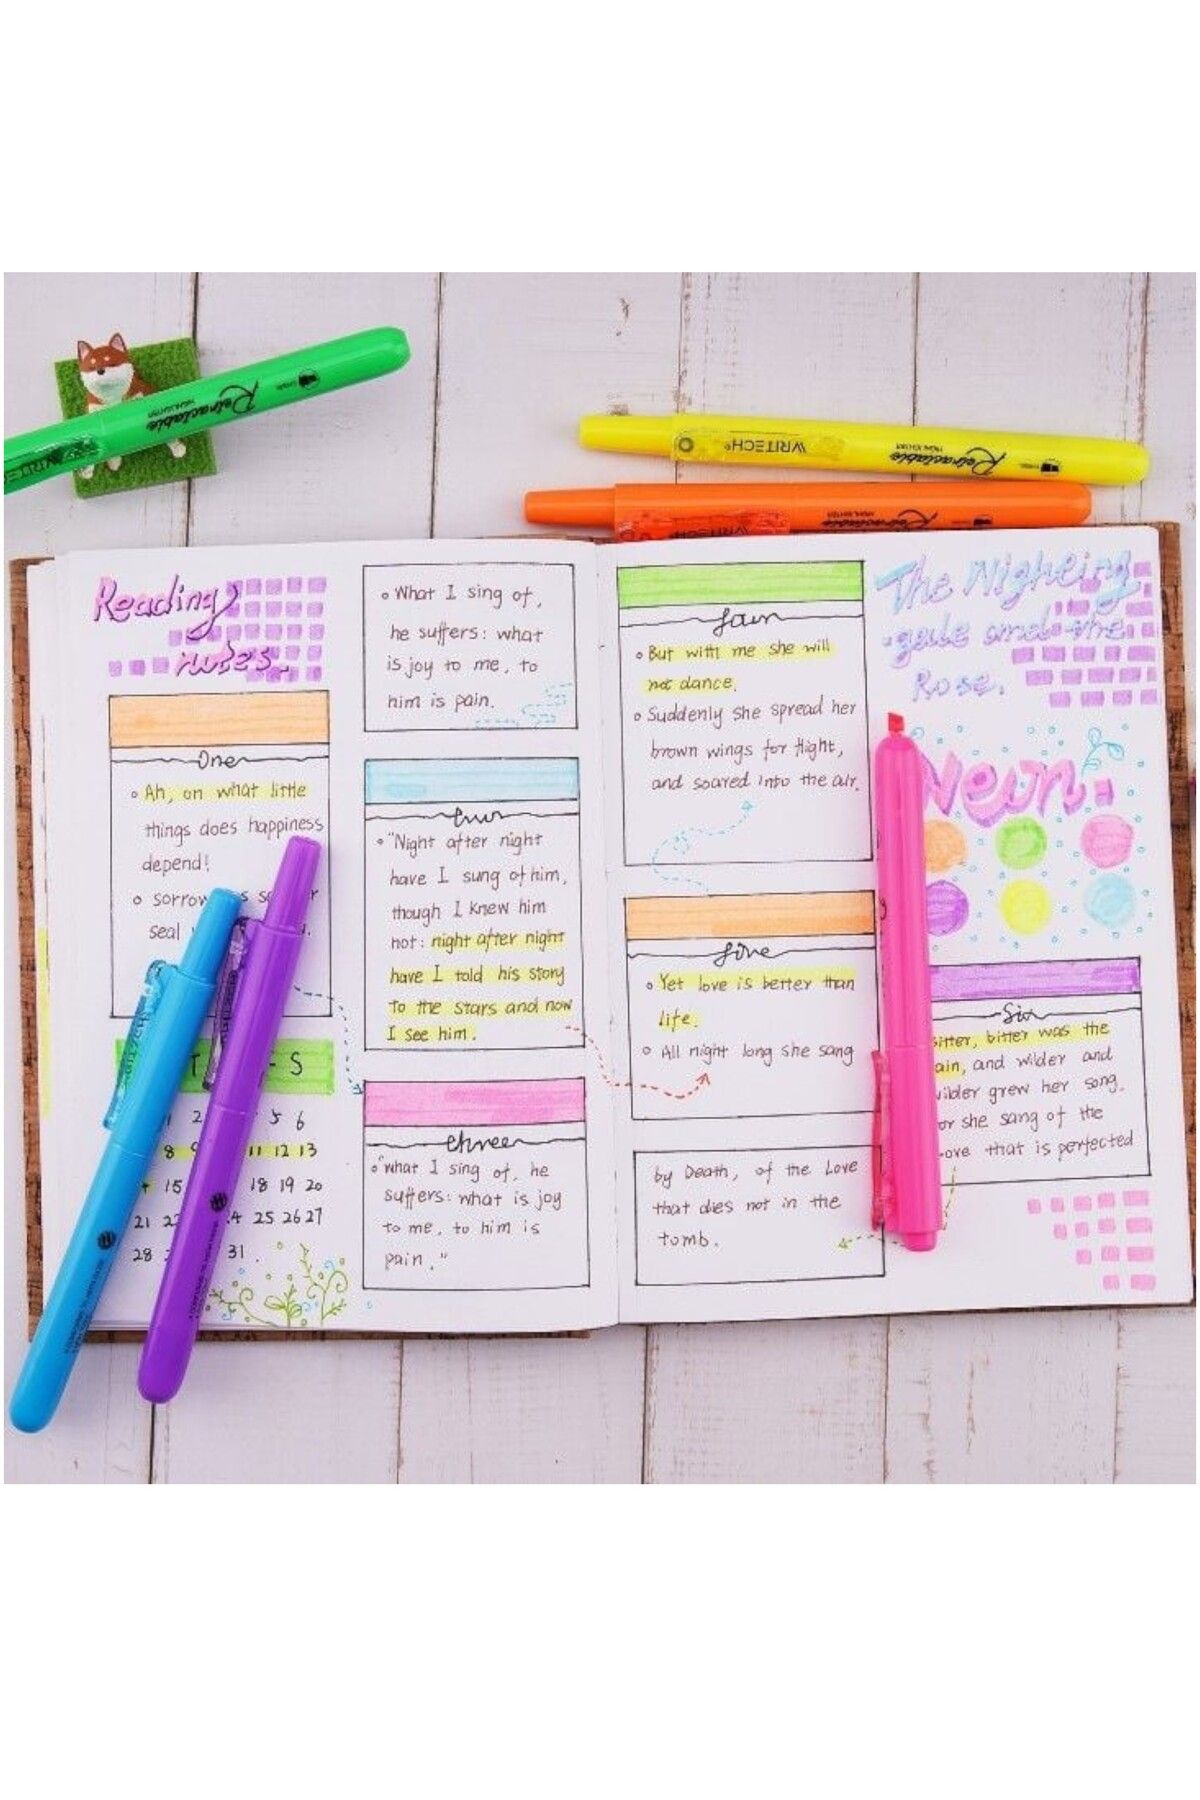 Retractable
HIGHLIGHTER
WRITECH
WRITECH®
Retractable
HIGHLIGHTER
WRITECH
Retractable
HIGHLIGHTER
Reading
notes.
One
Ah, on what little
things does happiness
depend!
sorrow
seal
T S
1 2 5 6
8 9 11 12 13
15 18 19 20
21 22 24 25 26 27
28 31.
What I sing of,
he suffers: what
is joy to me, to
him is pain.
two
"Night after night
have I sung of him,
though I knew him
not: night after night
have I told his story
to the stars and now
I see him.
three
"what I sing of, he
suffers: what is joy
to me, to him is
pain."
four
But with me she will
not dance.
Suddenly she spread her
brown wings for flight,
and soared into the air.
five
Yet love is better than
life.
All night long she sang
by Death, of the Love
that dies not in the
tomb.
The Nightin
-gale and the
Rose.
Neon.
Six
bitter, bitter was the
pain, and wilder and
wilder grew her song.
for she sang of the
Love that is perfected